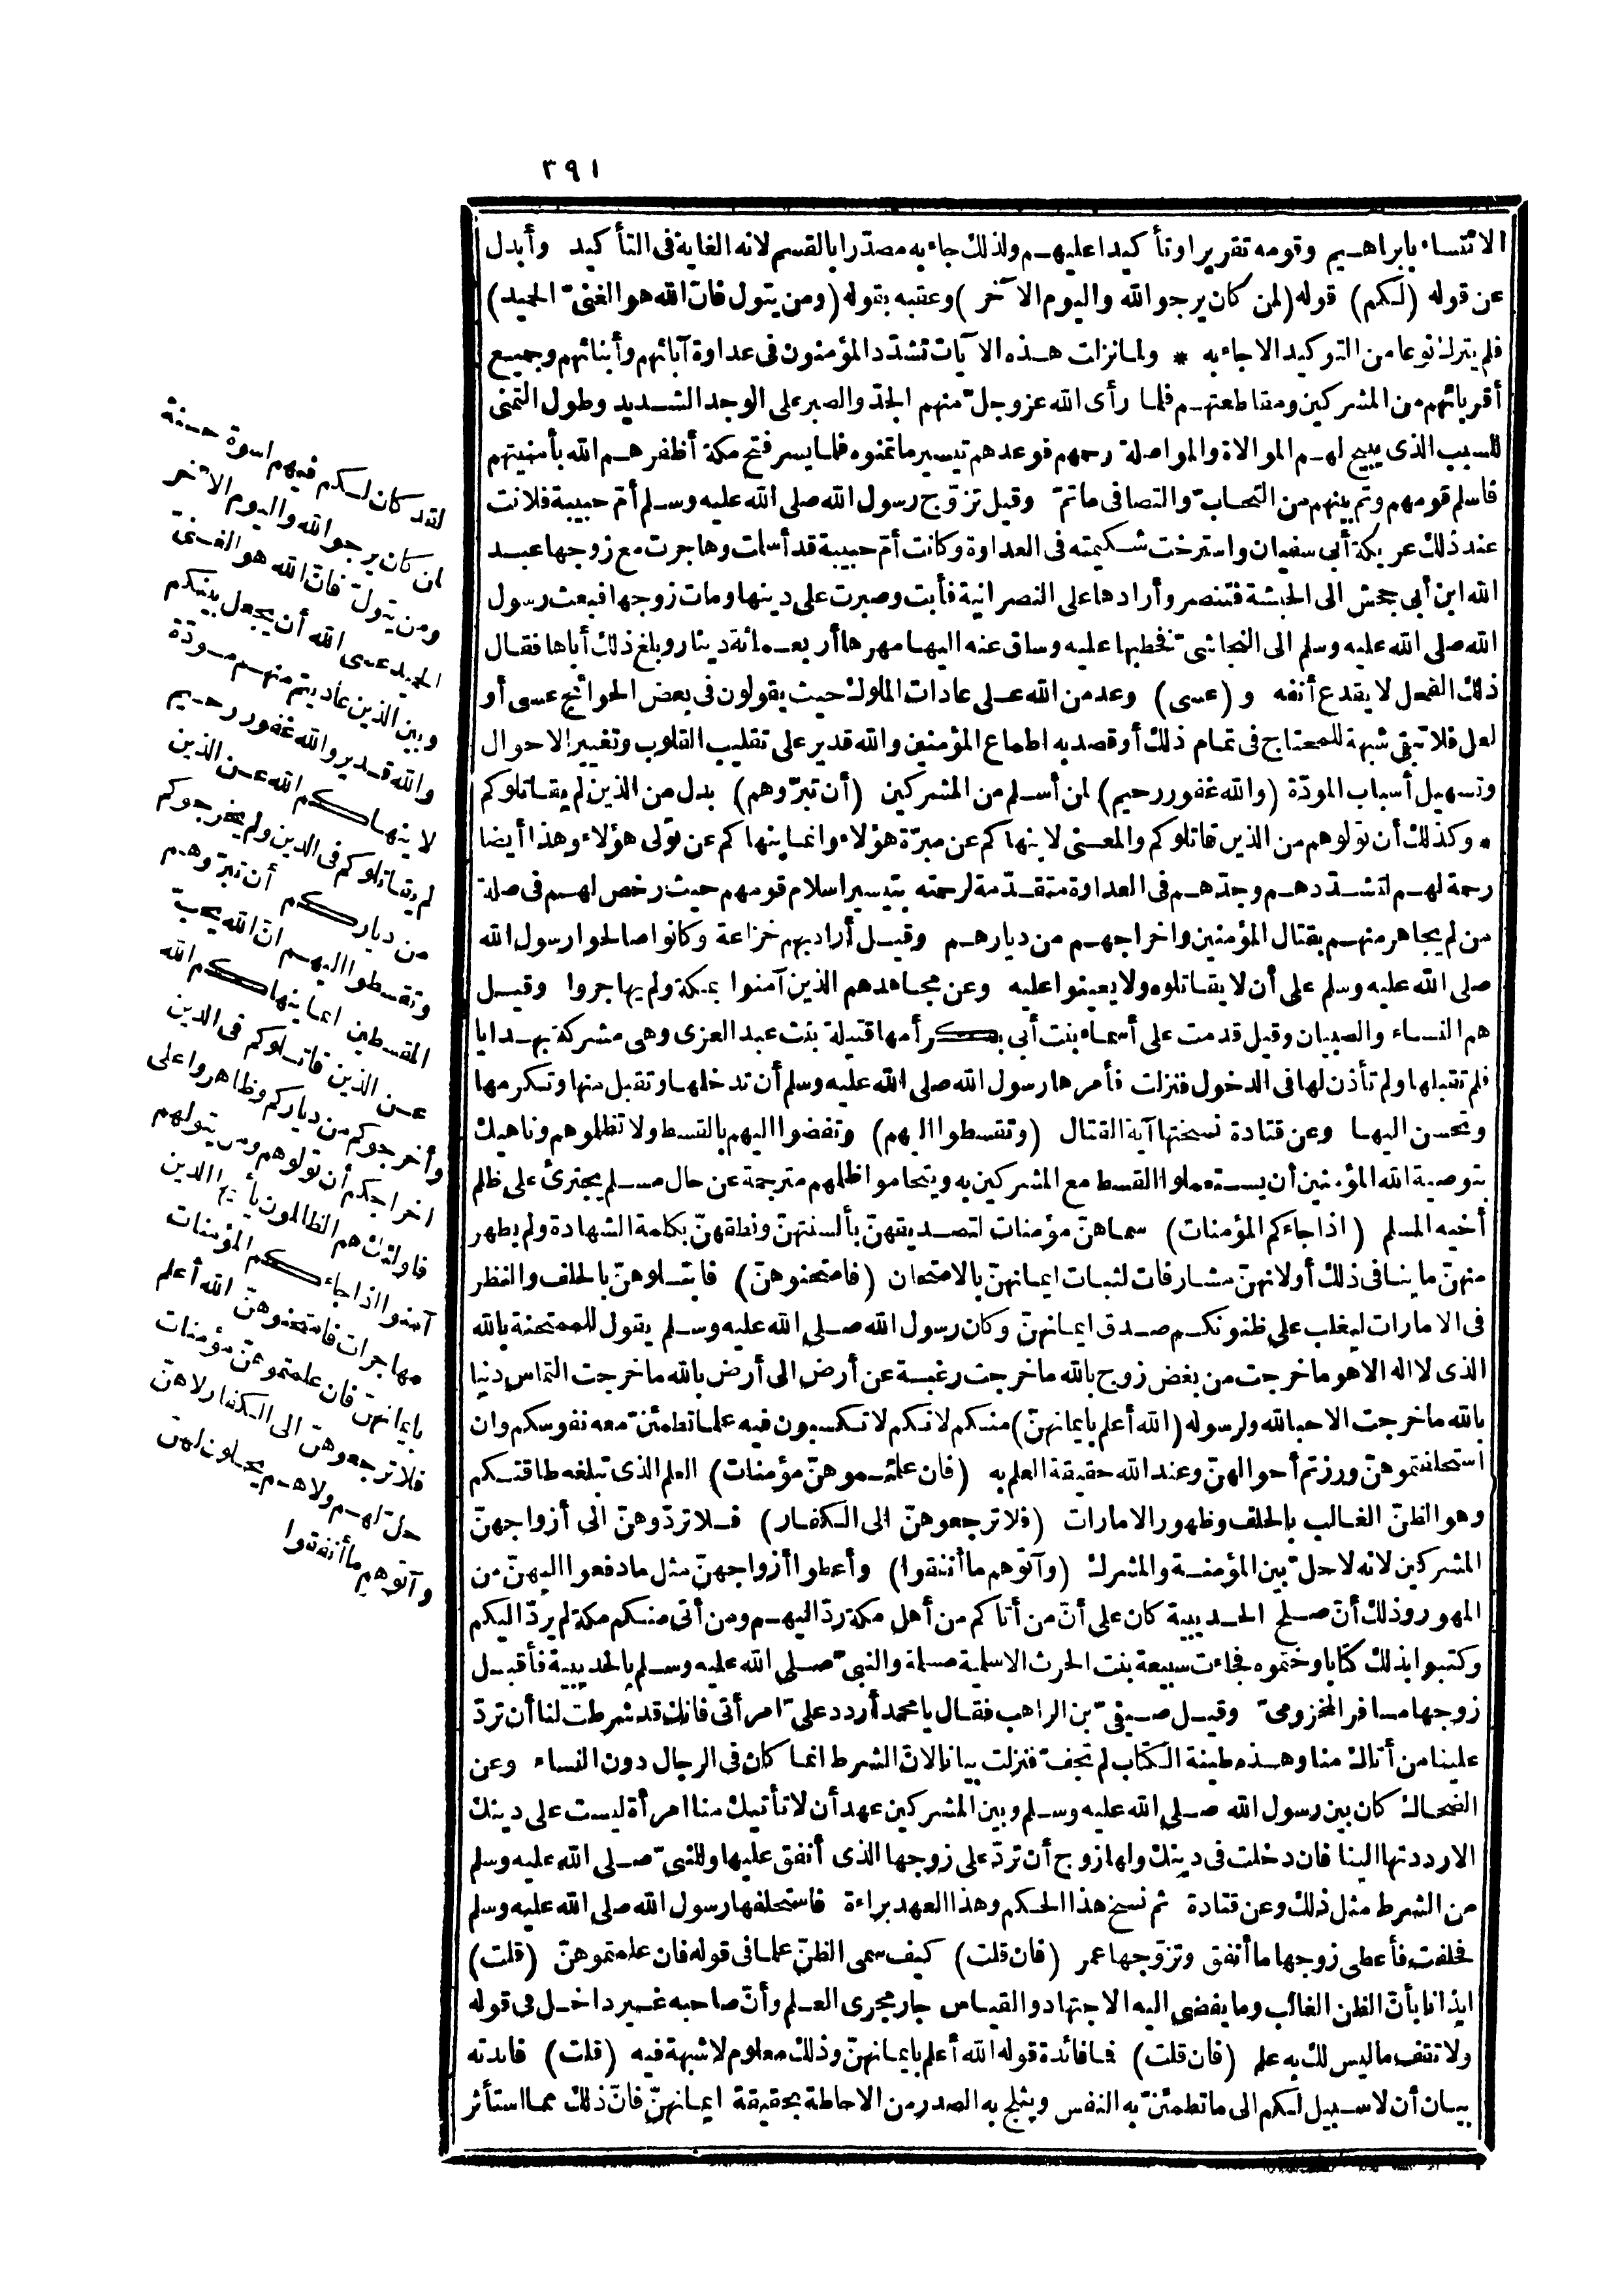 ٣٩١
الائتساء بابراهيم وقومه تقريرا وتأكيدا عليهم ولذلك جاء به مصدّرا بالقسم لانه الغاية فى التأكيد وأبدل
عن قوله (لكم) قوله (لمن كان يرجو الله واليوم الآخر) وعقبه بقوله (ومن يتول فانّ الله هو الغنىّ الحميد)
فلم يترك نوعا من التوكيد الا جاء به * ولما نزلت هذه الآيات تشدّد المؤمنون فى عداوة آبائهم وأبنائهم وجميع
أقربائهم من المشركين ومقاطعتهم فلما رأى الله عز وجلّ منهم الجدّ والصبر على الوجد الشديد وطول التمنى
للسبب الذى يبيح لهم الموالاة والمواصلة رحمهم فوعدهم تيسير ما تمنوه فلما يسر فتح مكة أظفرهم الله بأمنيتهم
فاسلم قومهم وتم بينهم من التحابّ والتصافى ما تمّ وقيل تزوّج رسول الله صلى الله عليه وسلم أمّ حبيبة فلانت
عند ذلك عريكة أبى سفيان واسترخت شكيمته فى العداوة وكانت أمّ حبيبة قد أسلمت وهاجرت مع زوجها عبد
الله ابن أبى جحش الى الحبشة فتنصر وأرادها على النصرانية فأبت وصبرت على دينها ومات زوجها فبعث رسول
الله صلى الله عليه وسلم الى النجاشىّ فخطبها عليه وساق عنه اليها مهرها أربعمائة دينار وبلغ ذلك أباها فقال
ذلك الفحل لا يقدع أنفه و (عسى) وعد من الله على عادات الملوك حيث يقولون فى بعض الحوائج عسى أو
لعل فلا تبقى شبهة للمحتاج فى تمام ذلك أو قصد به اطماع المؤمنين والله قدير على تقليب القلوب وتغيير الاحوال
وتسهيل أسباب المودّة (والله غفور رحيم) لمن أسلم من المشركين (أن تبرّوهم) بدل من الذين لم يقاتلوكم
* وكذلك أن تولوهم من الذين قاتلوكم والمعنى لا ينهاكم عن مبرّة هؤلاء وانما ينهاكم عن تولى هؤلاء وهذا أيضا
رحمة لهم لتشدّدهم وجدّهم فى العداوة متقدّمة لرحمته بتيسير اسلام قومهم حيث رخص لهم فى صلة
من لم يجاهر منهم بقتال المؤمنين واخراجهم من ديارهم وقيل أراد بهم خزاعة وكانوا صالحوا رسول الله
صلى الله عليه وسلم على أن لا يقاتلوه ولا يعينوا عليه وعن مجاهد هم الذين آمنوا بمكة ولم يهاجروا وقيل
هم النساء والصبيان وقيل قدمت على أسماء بنت أبى بكر أمها قتيلة بنت عبد العزى وهى مشركة بهدايا
فلم تقبلها ولم تأذن لها فى الدخول فنزلت فأمرها رسول الله صلى الله عليه وسلم أن تدخلها وتقبل منها وتكرمها
وتحسن اليها وعن قتادة نسختها آية القتال (وتقسطوا اليهم) وتفضوا اليهم بالقسط ولا تظلموهم وناهيك
بتوصية الله المؤمنين أن يستعملوا القسط مع المشركين به ويتحاموا ظلمهم مترجمة عن حال مسلم يجترئ على ظلم
أخيه المسلم (اذا جاءكم المؤمنات) سماهنّ مؤمنات لتصديقهنّ بألسنتهنّ ونطقهنّ بكلمة الشهادة ولم يظهر
منهنّ ما ينافى ذلك أو لانهنّ مشارفات لثبات ايمانهنّ بالامتحان (فامتحنوهنّ) فابتلوهنّ بالحلف والنظر
فى الامارات ليغلب على ظنونكم صدق ايمانهنّ وكان رسول الله صلى الله عليه وسلم يقول للممتحنة بالله
الذى لا اله الا هو ما خرجت من بغض زوج بالله ما خرجت رغبة عن أرض الى أرض بالله ما خرجت التماس دنيا
بالله ما خرجت الا حبا لله ولرسوله (الله أعلم بايمانهنّ) منكم لانكم لا تكسبون فيه علما تطمئنّ معه نفوسكم وان
استحلفتموهنّ ورزتم أحوالهنّ وعند الله حقيقة العلم به (فان علمتموهنّ مؤمنات) العلم الذى تبلغه طاقتكم
وهو الظنّ الغالب بالحلف وظهور الامارات (فلا ترجعوهنّ الى الكفار) فلا تردّوهنّ الى أزواجهنّ
المشركين لانه لا حلّ بين المؤمنة والمشرك (وآتوهم ما أنفقوا) وأعطوا أزواجهنّ مثل ما دفعوا اليهنّ من
المهور وذلك أنّ صلح الحديبية كان على أنّ من أتاكم من أهل مكة ردّ اليهم ومن أتى منكم مكة لم يردّ اليكم
وكتبوا بذلك كتابا وختموه فجاءت سبيعة بنت الحرث الاسلمية مسلمة والنبىّ صلى الله عليه وسلم بالحديبية فأقبل
زوجها مسافر المخزومىّ وقيل صيفىّ بن الراهب فقال يا محمد أردد علىّ امرأتى فانك قد شرطت لنا أن تردّ
علينا من أتاك منا وهذه طينة الكتاب لم تجفّ فنزلت بيانا لانّ الشرط انما كان فى الرجال دون النساء وعن
الضحاك كان بين رسول الله صلى الله عليه وسلم وبين المشركين عهد أن لا تأتيك منا امرأة ليست على دينك
الا رددتها الينا فان دخلت فى دينك ولها زوج أن تردّ على زوجها الذى أنفق عليها وللنبىّ صلى الله عليه وسلم
من الشرط مثل ذلك وعن قتادة ثم نسخ هذا الحكم وهذا العهد براءة فاستحلفها رسول الله صلى الله عليه وسلم
فحلفت فأعطى زوجها ما أنفق وتزوّجها عمر (فان قلت) كيف سمى الظنّ علما فى قوله فان علمتموهنّ (قلت)
ايذانا بأنّ الظن الغالب وما يفضى اليه الاجتهاد والقياس جار مجرى العلم وأنّ صاحبه غير داخل فى قوله
ولا تقف ما ليس لك به علم (فان قلت) فما فائدة قوله الله أعلم بايمانهنّ وذلك معلوم لا شبهة فيه (قلت) فائدته
بيان أن لا سبيل لكم الى ما تطمئنّ به النفس ويثلج به الصدر من الاحاطة بحقيقة ايمانهنّ فانّ ذلك مما استأثر
لقد كان لكم فيهم اسوة حسنة
لمن كان يرجو الله واليوم الآخر
ومن يتولّ فانّ الله هو الغنىّ
الحميد عسى الله أن يجعل بينكم
وبين الذين عاديتم منهم مودّة
والله قدير والله غفور رحيم
لا ينهاكم الله عن الذين
لم يقاتلوكم فى الدين ولم يخرجوكم
من دياركم أن تبرّوهم
وتقسطوا اليهم انّ الله يحبّ
المقسطين انما ينهاكم الله
عن الذين قاتلوكم فى الدين
وأخرجوكم من دياركم وظاهروا على
اخراجكم أن تولوهم ومن يتولهم
فاولئك هم الظالمون يأيها الذين
آمنوا اذا جاءكم المؤمنات
مهاجرات فامتحنوهنّ الله أعلم
بايمانهنّ فان علمتموهنّ مؤمنات
فلا ترجعوهنّ الى الكفار لاهنّ
حلّ لهم ولا هم يحلون لهنّ
وآتوهم ما أنفقوا